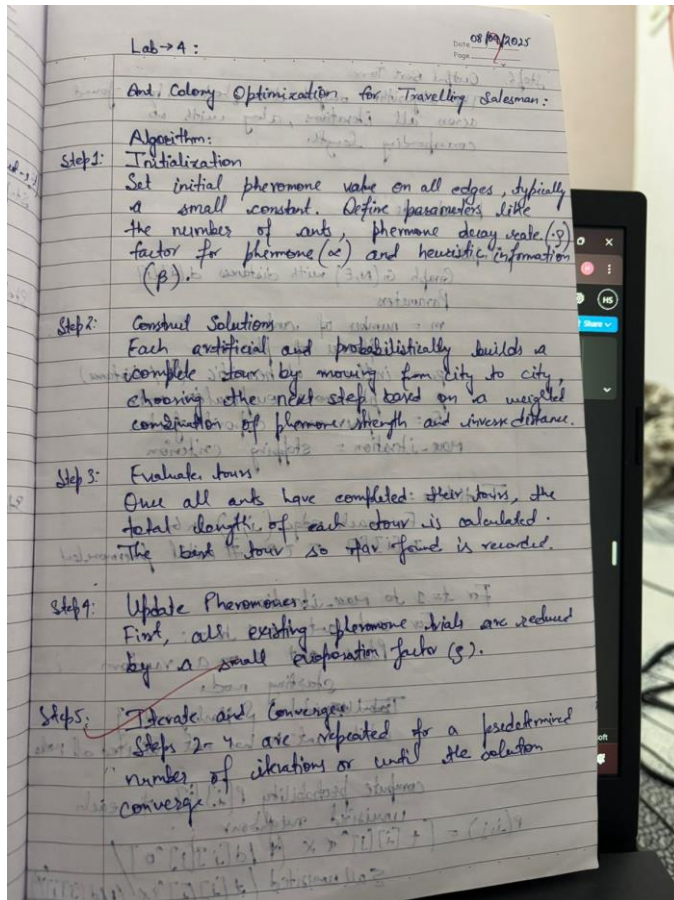 Date 08/09/2025
Page
Lab→4:
Ant Colony Optimization for Travelling Salesman:
Algorithm:
Step1: Initialization
Set initial pheromone value on all edges, typically
a small constant. Define parameters like
the number of ants, phermone decay rate (ρ)
factor for phermone (α) and heuristic information
(β).
Step2: Construct Solutions
Each artificial and probabilistically builds a
complete tour by moving from city to city,
choosing the next step based on a weighted
combination of phermone strength and inverse distance.
Step 3: Evaluate tours
Once all ants have completed their tours, the
total length of each tour is calculated.
The best tour so far found is recorded.
Step4: Update Pheromones:
First, all existing pheromone trials are reduced
by a small evaporation factor (ρ).
Step5: Iterate and Converge:
Steps 2-4 are repeated for a predetermined
number of iterations or until the solution
converge.
HS
Share